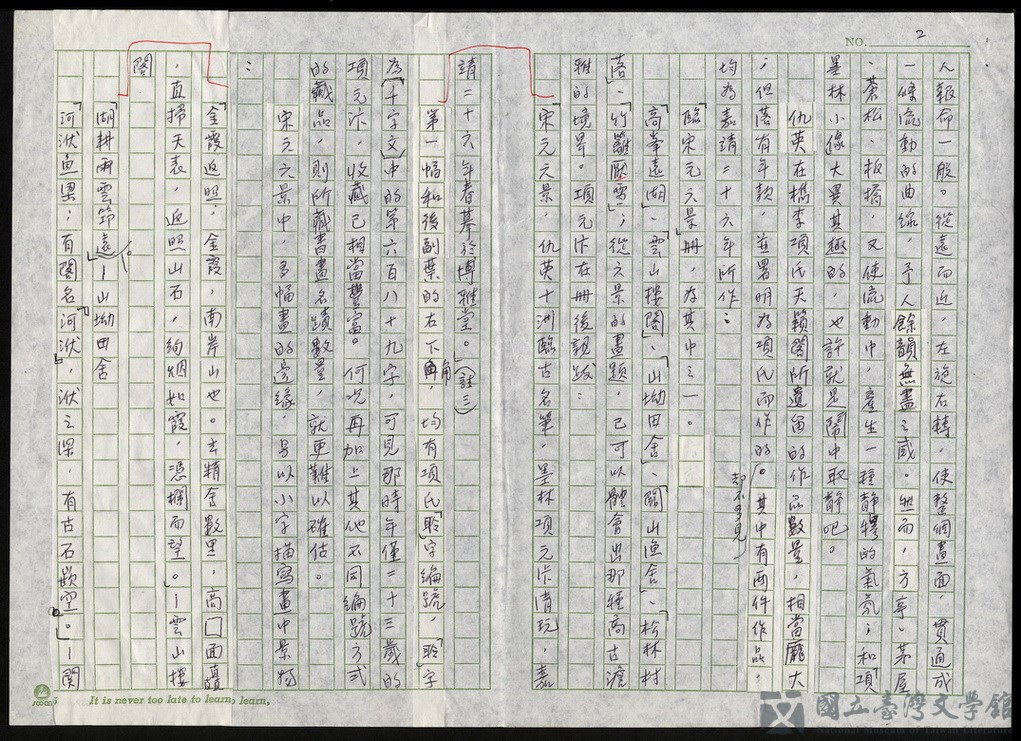 NO. 2
人報命一般。從遠而近,左旋右轉,使整個畫面,貫通成
一條流動的曲線,予人餘韻無盡之感。然而,方亭。茅屋
、蒼松、板橋,又使流動中,產生一種靜穆的氣氛;和「項
墨林小像大異其趣的,也許就是鬧中取靜吧。
仇英在檇李項氏天籟閣所遺留的作品數量,相當龐大
;但落有年款,並署明為項氏而作的卻不多見。其中有兩件作品,
均為嘉靖二十六年所作:
「臨宋元六景」冊,為其中之一。
「高峯遠湖」、「雲山樓閣」、「山坳田舍」、「關山漁舍」、「松林村
落」、「竹籬厭雪」;從六景的畫題,已可以體會出那種高古澹
雅的境界。項元汴在冊後親跋:
「宋元六景,仇英十洲臨古名筆,墨林項元汴清玩,嘉
靖二十六年春摹於博雅堂。」(註三)
第一幅和後副葉的右下角,均有項氏「聆」字編號,「聆」字
為「千字文」中的第六百八十九字,可見那時年僅二十三歲的
項元汴,收藏已相當豐富。何況再加上其他不同編號方式
的藏品,則所藏書畫名蹟數量,就更難以確估。
宋元六景中,多幅畫的邊緣,另以小字描寫畫中景物
:
「金霞返照,金霞,南岸山也。去精舍數里,高□面
,直掃天表,返照山石,絢烟如霞,憑欄而望。」—雲山樓
閣
「湖耕雨雲筇遠」—山坳田舍
「河洑魚梁,有閣名「河洑」,洑之深,有古石嵌空。」—關
It is never too late to learn, learn.
國立臺灣文學館
National Museum of Taiwan Literature